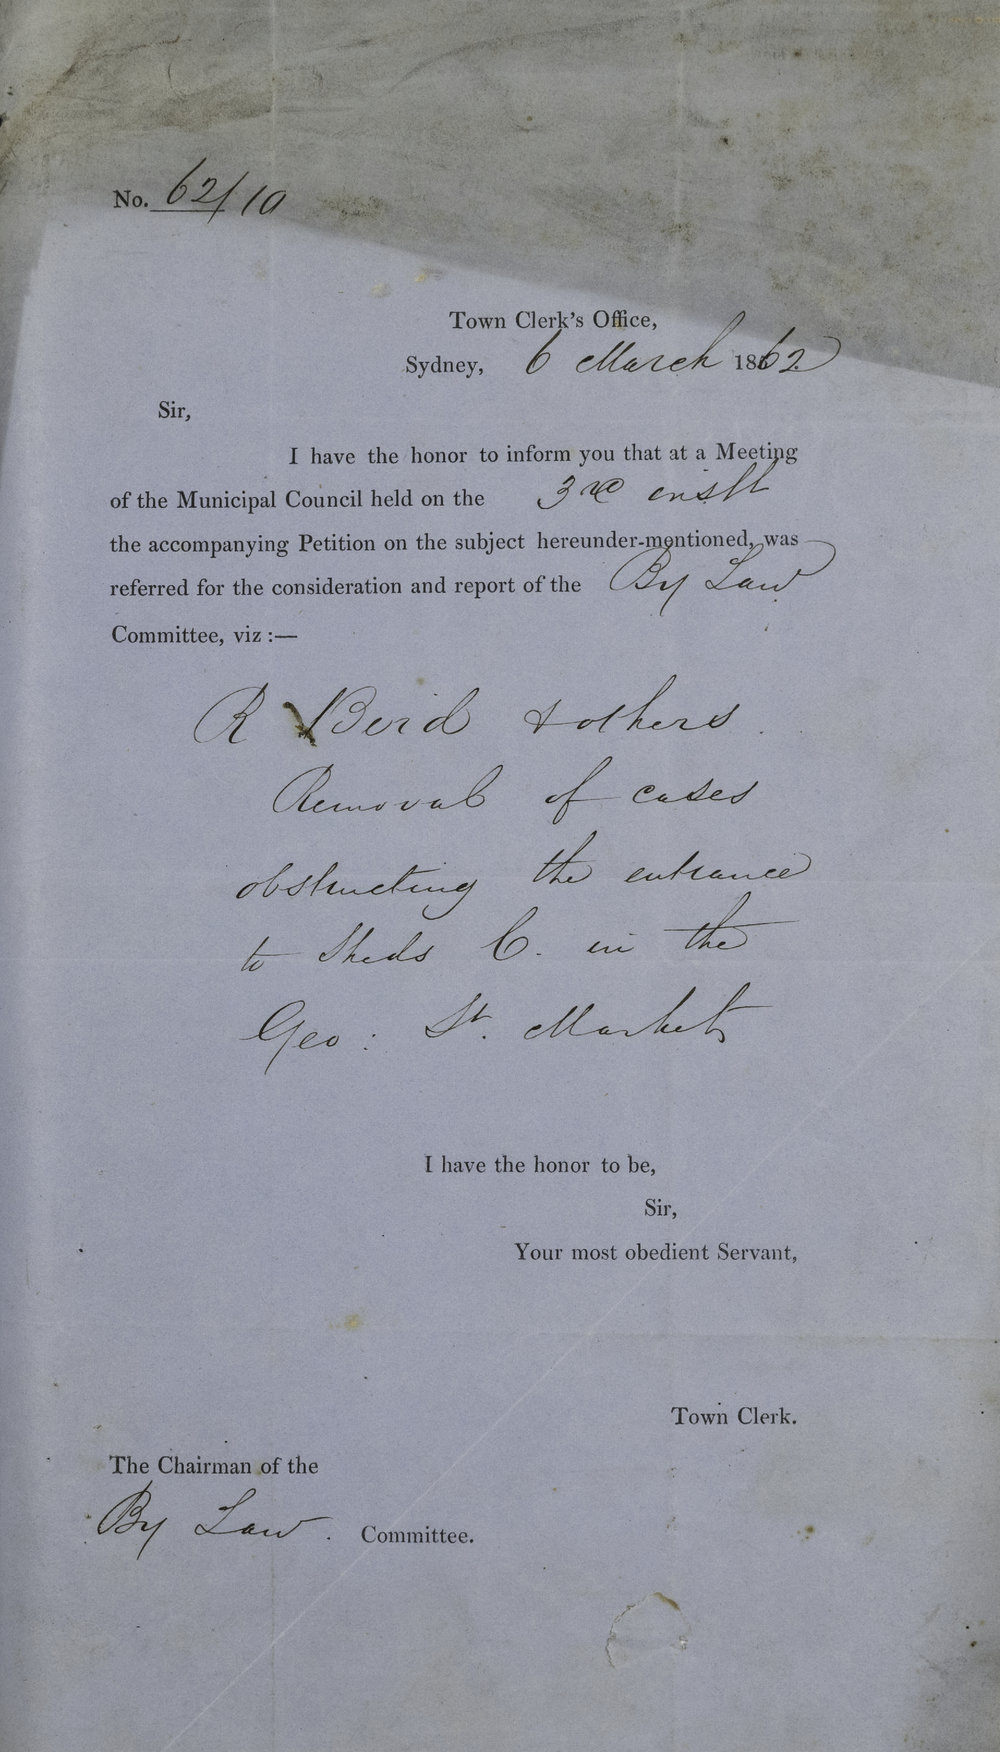 No. 62/10
Town Clerk's Office,
Sydney, 6 March 1862
Sir,
I have the honor to inform you that at a Meeting
of the Municipal Council held on the 3rd instt
the accompanying Petition on the subject hereunder-mentioned, was
referred for the consideration and report of the By Law
Committee, viz :—
R Beid & others.
Removal of cases
obstructing the entrance
to Sheds C. in the
Geo: St. Market
I have the honor to be,
Sir,
Your most obedient Servant,
Town Clerk.
The Chairman of the
By Law. Committee.